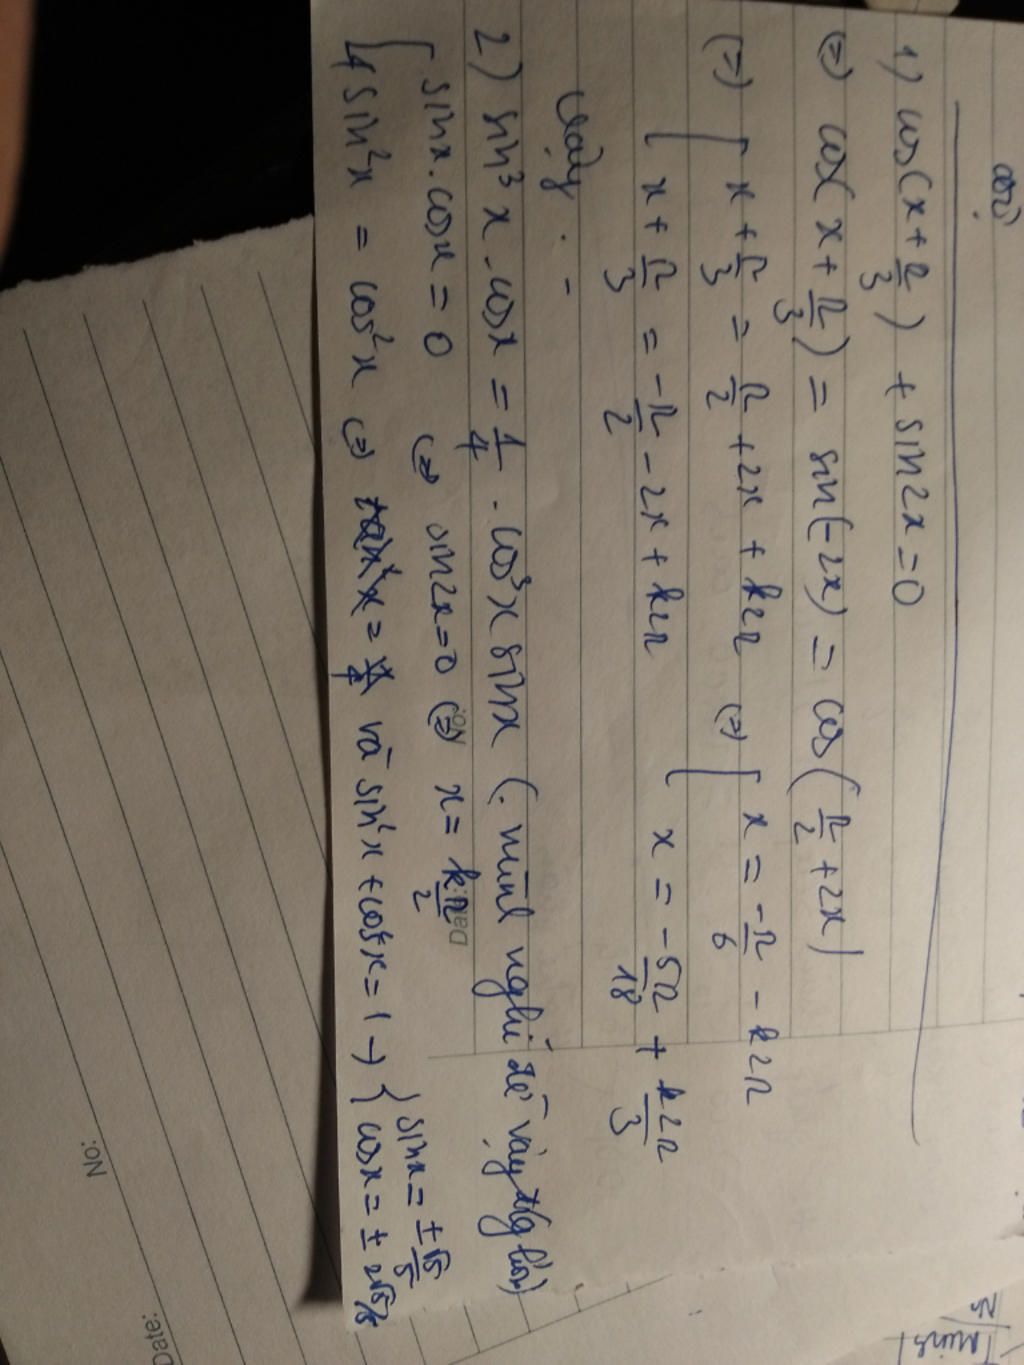 1) cos(x + π/3) + sin2x = 0
(=) cos(x + π/3) = sin(-2x) = cos(π/2 + 2x)
(=) [ x + π/3 = π/2 + 2x + k2π (=) [ x = -π/6 - k2π
x + π/3 = -π/2 - 2x + k2π x = -5π/18 + k2π/3
Vậy . -
2) sin³x . cosx = 1/4 . cos³x sinx (. mình nghĩ đề vậy
[ sinx . cosx = 0 (=) sin2x = 0 (=) x = kπ/2
4 sin²x = cos²x (=) và sin²x + cos²x = 1 → { sinx = ± √5/5
cosx = ± 2√5/5
No:
Date: